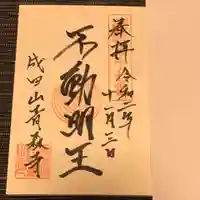 奉拝 令和二年
十一月三日
不動明王
成田山青森寺